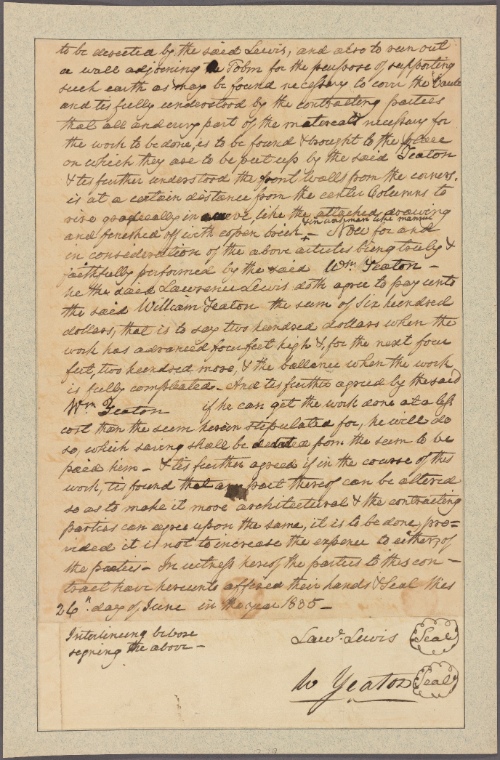 to be directed by the said Lewis, and also to run out
a wall adjoining the Tomb for the purpose of supporting
such earth as may be found necessary to cover the Vault
and tis fully understood by the contracting parties
that all and every part of the materials necessary for
the work to be done, is to be found & brought to the place
on which they are to be put up by the said Yeaton
& tis further understood the front walls from the corners.
is at a certain distance from the center Columns to
rise gradually in a curve like the attached drawing
and finished off with copen brick + in workman like manner + Now for and
in consideration of the above articles being truly &
faithfully performed by the said Wm Yeaton –
he the said Lawrence Lewis doth agree to pay unto
the said William Yeaton the sum of six hundred
dollars, that is to say two hundred dollars when the
work has advanced four feet high & for the next four
feet, two hundred more, & the ballance when the work
is fully compleated – And tis further agreed by the said
Wm Yeaton if he can get the work done at a less
cost than the sum herein stipulated for, he will do
so, which saving shall be deducted from the sum to be
paid him – & tis further agreed if in the course of this
work, tis found that any part thereof can be altered
so as to make it more architectural & the contracting
parties can agree upon the same, it is to be done, pro=
vided it is not to increase the expence to either of
the parties – In witness hereof the parties to this con-
tract have hereunto affixed their hands & Seal this
26th day of June in the year 1835 –
Interlineing before
signing the above –
Lawr. Lewis Seal
W Yeaton Seal